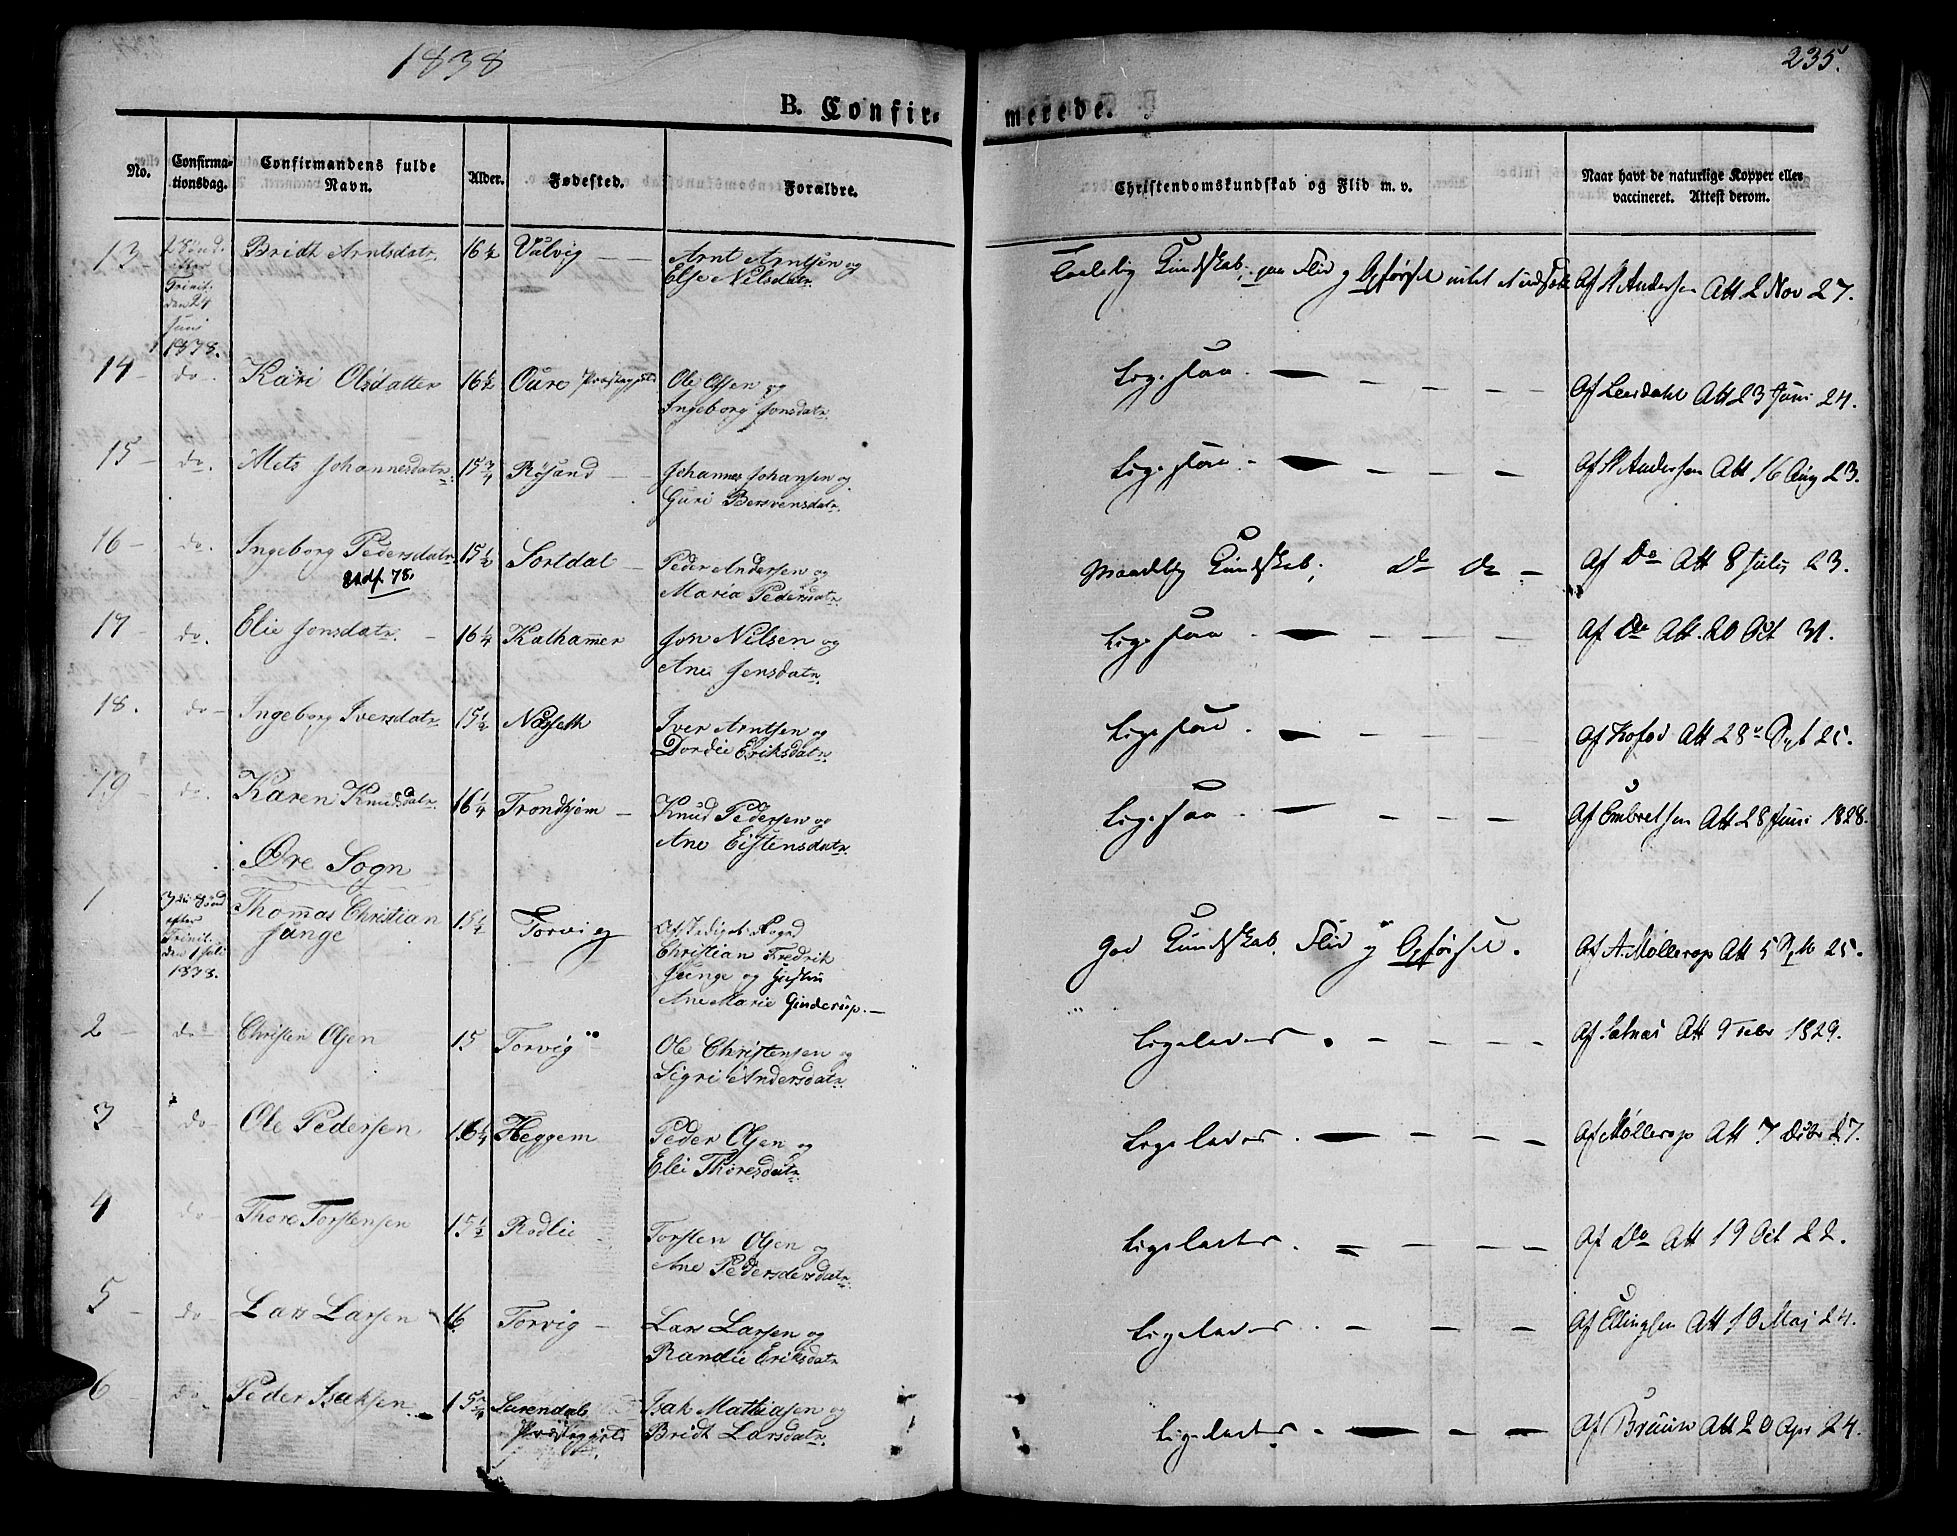 1838
235.
B. Confir- merede.
No.
Confirma-
tionsdag.
Confirmandens fulde
Navn.
Alder.
Fødested.
Forældre.
Christendomskundskab og Flid m. v.
Naar havt de naturlige Kopper eller
vaccineret. Attest derom.
13 2 Sønd. Bridt Arntsdatr. 16½ Valvig — Arnt Arntsen og
efter Trinit. den 24 Juni 1838. Else Nilsdatr.
Kundskab, Flid og Opførsel intet Af Andersen Att 2 Nov 27.
14 — do. Kari Olsdatter 16½ Oure Præstegjeld Ole Olsen og
Ingeborg Jonsdatr.
Ligesaa. — — — — Af Leerdahl Att 23 Juni 24.
15 — do. Mets Johannesdatr. 15¾ Røsand — Johannes Johansen og
Guri Bersvensdatr.
Ligesaa — — — — Af Andersen Att 16 Aug 23.
16 — do. Ingeborg Pedersdatr. 15½ Sortdal — Peder Andersen og
Udf. 78. Maria Pedersdatr.
Maadelig Kundskab, Do Do — Af Do Att 8 July 23.
17 — do. Elie Jonsdatr. — 16¼ Kalhamer Jon Nilsen og
Ane Jensdatr.
Ligesaa . — — — — Af Do Att. 20 Oct 31.
18. do — Ingeborg Iversdatr. 15½ Næsseth Iver Arntsen og
Dordie Eriksdatr.
Ligesaa . — — — — Af Kofod Att 28 Sept 25.
19 — do. Karen Knudsdatr. 16¼ Trondhjem — Knud Pedersen og
Ane Eistensdatr.
Ligesaa . — — — — Af Embretsen Att 28 Juni 1828.
Øre Sogn
1 3die Sønd. Thomas Christian 15½ Torvig Afskediget Foged
efter Junge Christian Fredrik
Trinit. Junge og Hustru
den 1 Juli Ane Marie Ginderup. —
1838.
God Kundskab. Flid og Opførsel. Af A. Møllerop Att 5 Sept 25.
2 — do — Christen Olsen 15 Torvig Ole Christensen og
Sigri Andersdatr.
Ligeledes . — — — — Att 9 Febr 1829.
3 do — Ole Pedersen 16¼ Heggem Peder Olsen og
Eli Thoresdatr.
Ligeledes . — — — — Af Møllerop Att 7 Decbr 27.
4 do — Thore Torstensen 15½ Rodlie Torsten Olsen og
Ane Pedersdersdatr.
Ligeledes . — — — — Af Do Att 19 Oct 22.
5 — do — Lars Larsen 16 Torvig — Lars Larsen og
Randie Eriksdatr
Ligeledes . — — — — Af Ellingsen Att 13 Maj 24.
6 do. Peder Isaksen. 15¾ Surendals Isak Mathiasen og
Præstegjeld. Bridt Larsdatr.
Ligeledes . — — — — Af Bruun Att 20 Apr 24.